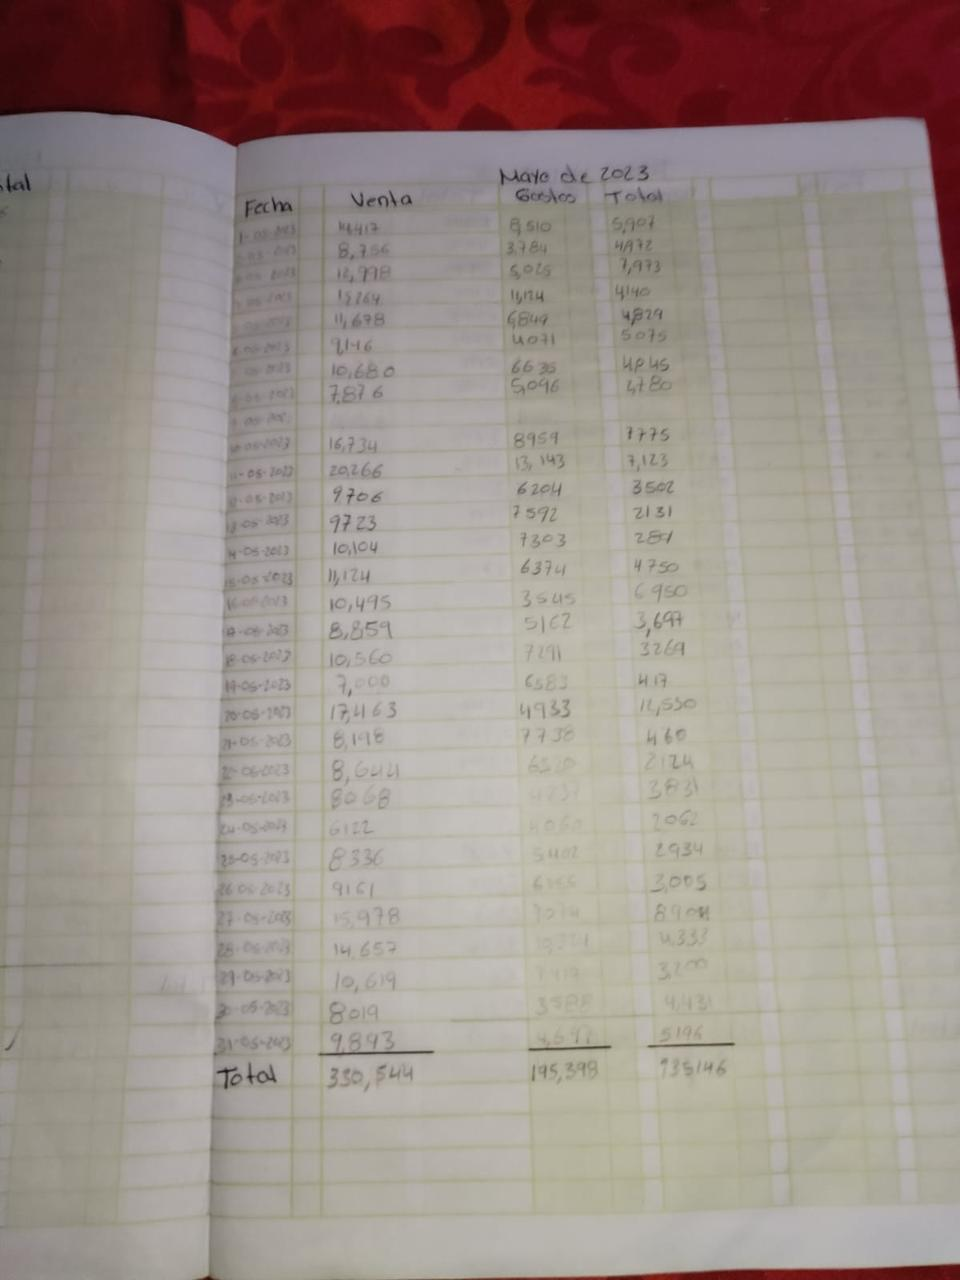 tal
Mayo de 2023
Fecha Venta Gastos Total
1-05-2023 14,417 8,510 5,907
8,756 3,784 4,972
2023 12,998 5,025 7,973
15264 11,124 4140
11,678 6849 4,829
2023 9,146 4071 5075
2023 10,680 6635 4,045
2023 7,876 5,096 2,780
10-05-2023 16,734 8959 7775
11-05-2023 20,266 13,143 7,123
12-05-2023 9,706 6204 3502
13-05-2023 9723 7592 2131
14-05-2023 10,104 7303 2801
15-05-2023 11,124 6374 4750
16-05-2023 10,495 3545 6950
17-05-2023 8,859 5162 3,697
18-05-2023 10,560 7291 3269
19-05-2023 7,000 6583 417
20-05-2023 17,463 4933 12,530
21-05-2023 8,198 7738 460
22-05-2023 8,644 6520 2124
23-05-2023 8068 4237 3,831
24-05-2023 6122 4060 2062
25-05-2023 8336 5402 2934
26-05-2023 9161 6156 3,005
27-05-2023 15,978 7074 8904
28-05-2023 14,657 10,324 4,333
29-05-2023 10,619 7419 3,200
30-05-2023 8019 3588 4,431
31-05-2023 9,893 4,697 5196
Total 330,544 195,398 135146